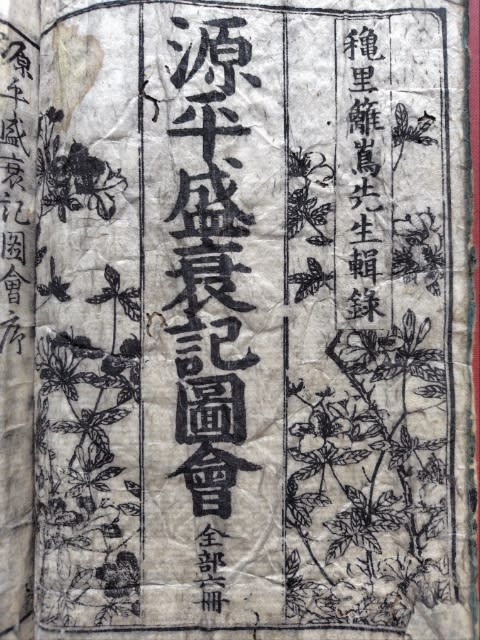 穐里籬嶌先生輯録
源平盛衰記圖會
全部六冊
源平盛衰記圖會序